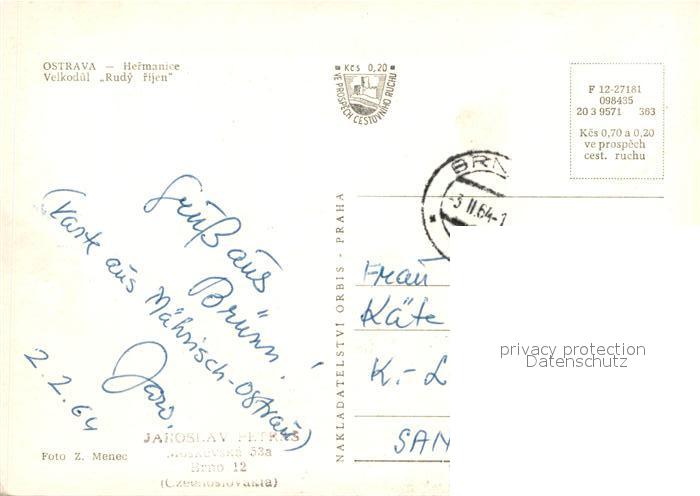 OSTRAVA — Heřmanice
Velkodůl „Rudý říjen"
Kčs 0,20
VE PROSPĚCH CESTOVNÍHO RUCHU
F 12-27181
098435
20 3 9571 363
Kčs 0,70 a 0,20
ve prospěch
cest. ruchu
BRN
-3.II.64-1
Gruß aus
Brünn!
(Karte aus Mährisch-Ostrau)
Jaro.
2.2.64
NAKLADATELSTVÍ ORBIS - PRAHA
Frau
Käte
K.-L
SAN
privacy protection
Datenschutz
JAROSLAV PETRÁS
Moskevská 53a
Brno 12
(Czechoslovakia)
Foto Z. Menec